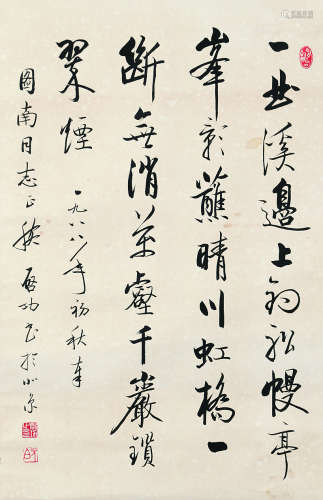 一曲溪邊上釣舩幔亭
峯影蘸晴川虹橋一
斷無消萬壑千巖鎖
翠煙 一九八八年初秋奉
圖南同志正腕 啟功書於北京